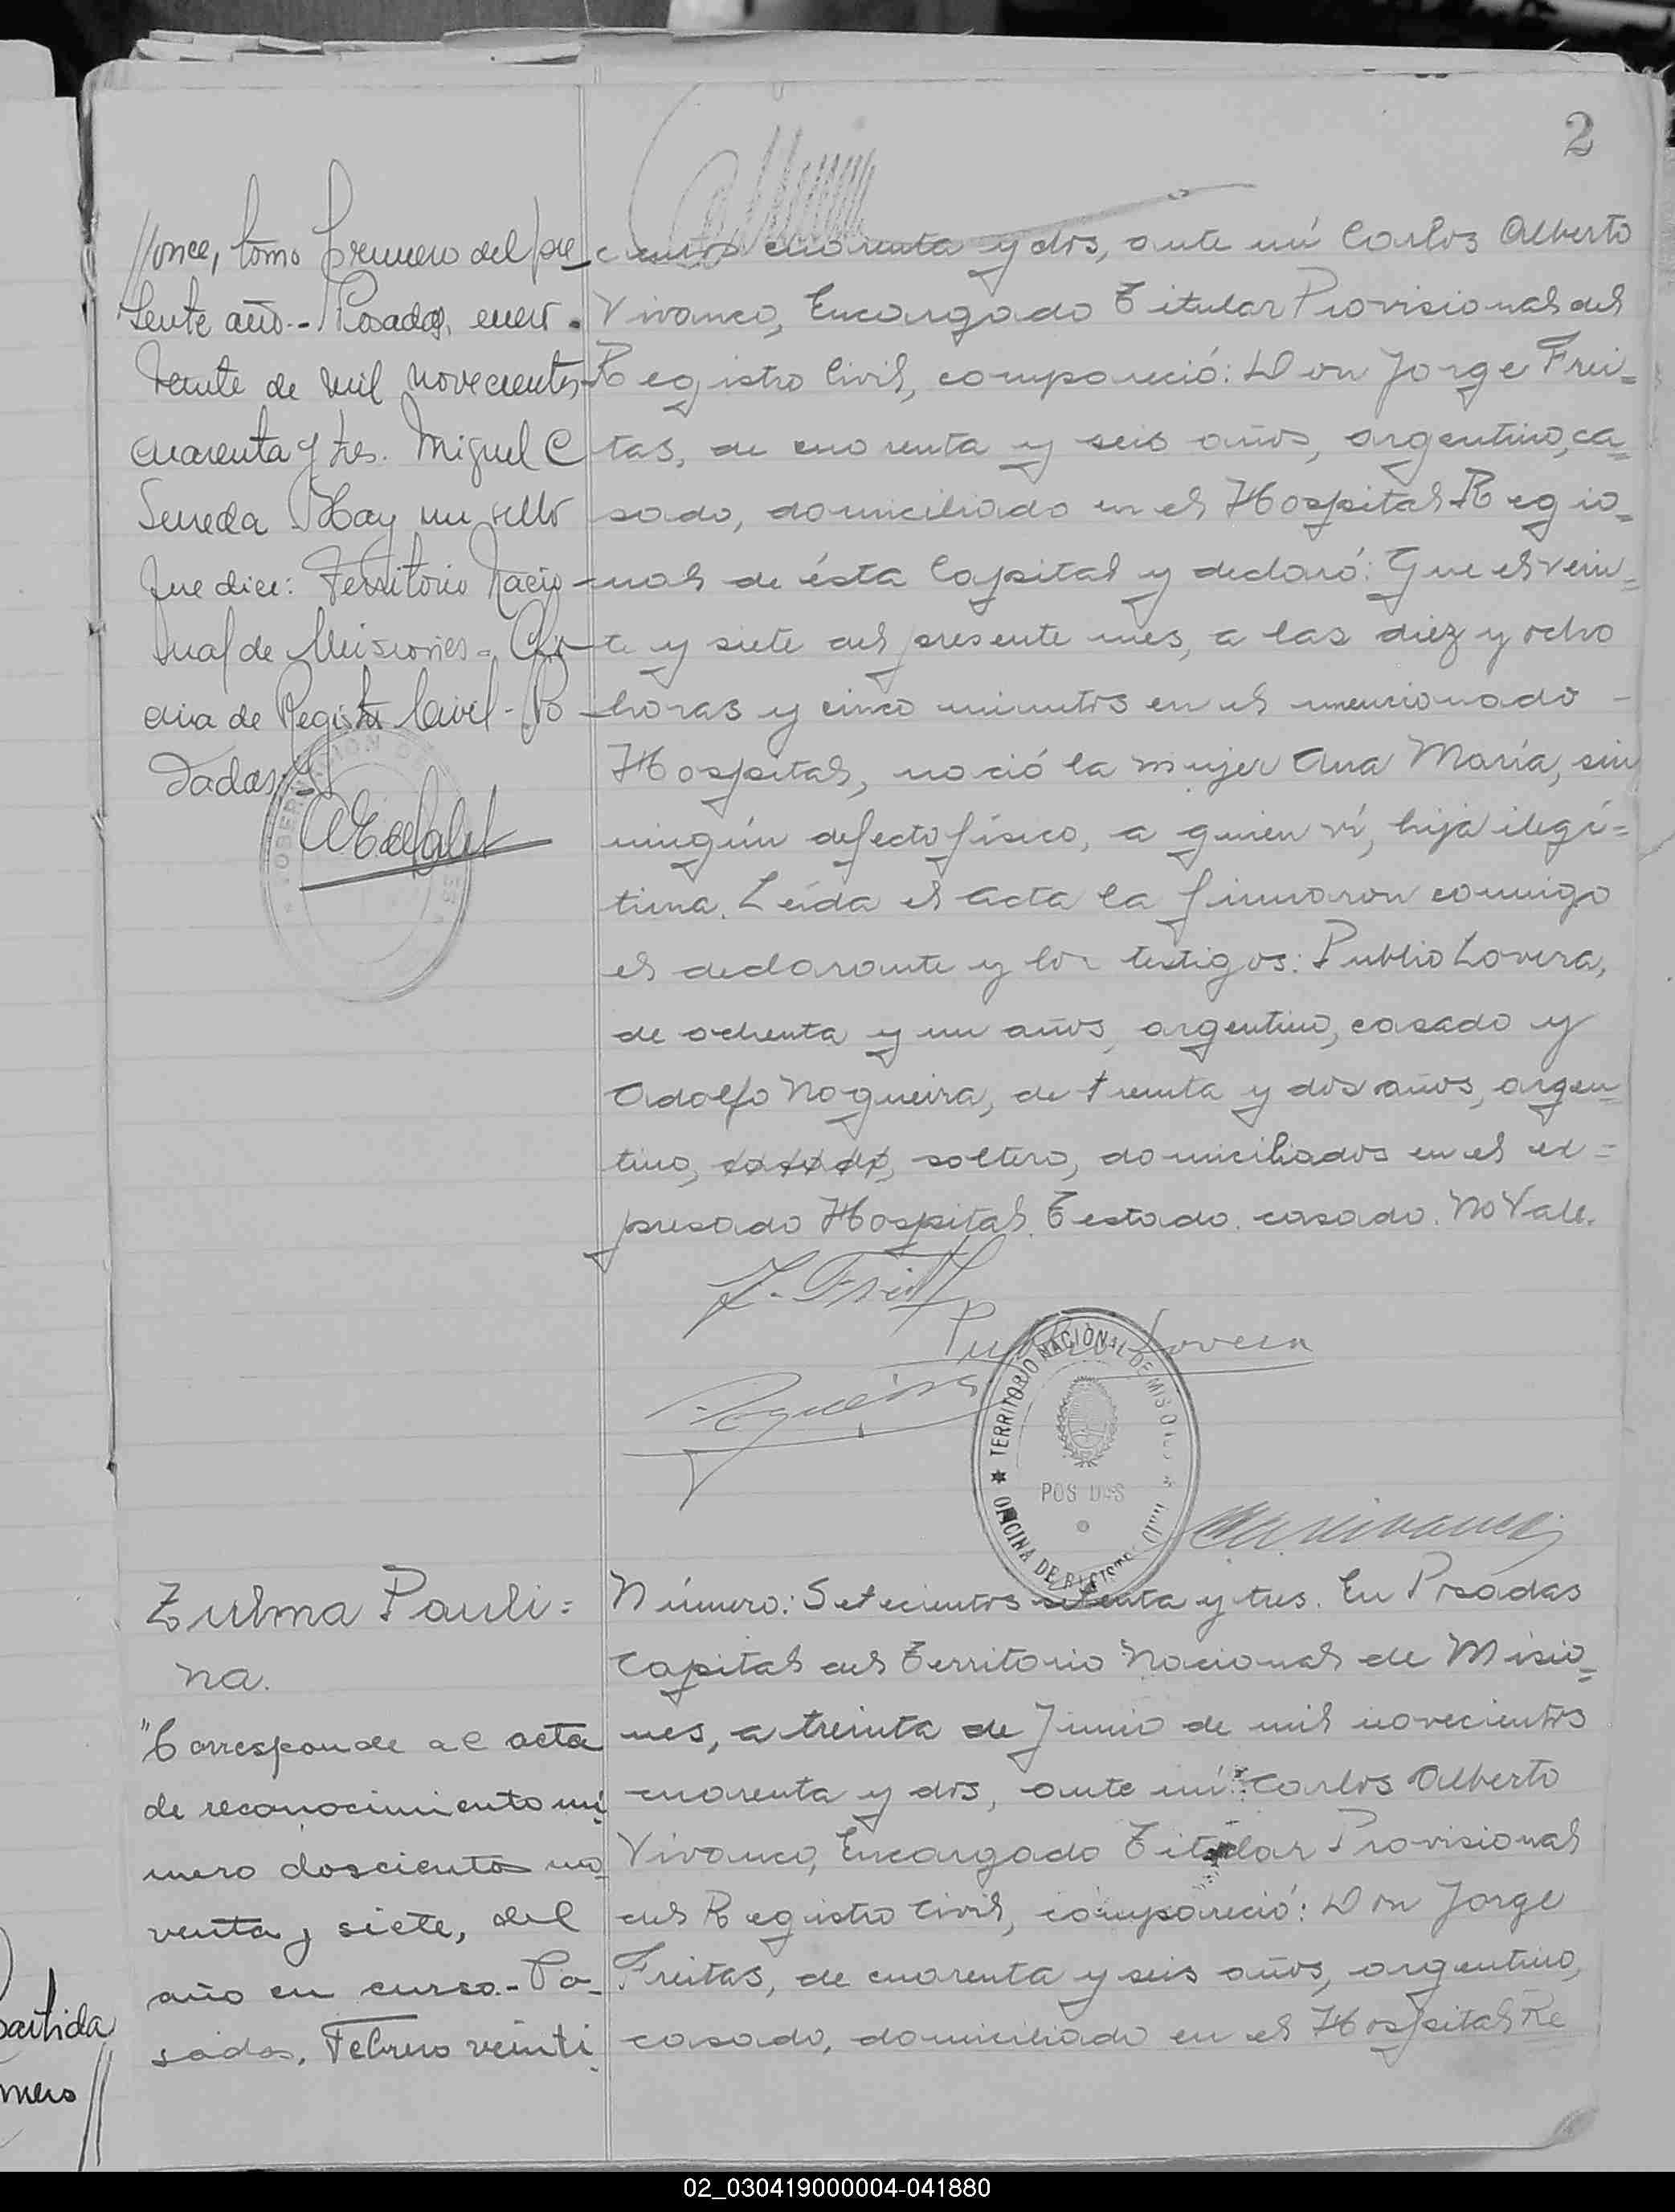 2
//once, tomo primero del pre-
sente año.- Posadas, enero
veinte de mil novecientos
cuarenta y tres. Miguel C
Sereda. Hay un sello
que dice: Territorio Nacio-
nal de Misiones - Ofi-
cina de Registro Civil - Po
sadas.
cientos cuarenta y dos, ante mí Carlos Alberto
Vivanco, Encargado Titular Provisional del
Registro Civil, compareció: Don Jorge Frei=
tas, de cuarenta y seis años, argentino, ca=
sado, domiciliado en el Hospital Regio=
nal de ésta Capital y declaró: Que el vein=
te y siete del presente mes, a las diez y ocho
horas y cinco minutos en el mencionado -
Hospital, nació la mujer Ana María, sin
ningún defecto físico, a quien ví, hija ilegí=
tima. Leída el acta la firmaron conmigo
el declarante y los testigos: Publio Lovera,
de ochenta y un años, argentino, casado y
Adolfo Nogueira, de treinta y dos años, argen=
tino, casado, soltero, domiciliados en el ex=
presado Hospital. Testado. casado. No Vale.
J. Freitas
Publio Lovera
TERRITORIO NACIONAL DE MISIONES
POSADAS
OFICINA DE REGISTRO CIVIL
Zulma Pauli=
na.
"Corresponde al acta
de reconocimiento nú
mero doscientos no
venta y siete, del
año en curso.- Po-
sadas, Febrero veinti
Número: Setecientos setenta y tres. En Posadas
Capital del Territorio Nacional de Misio=
nes, a treinta de Junio de mil novecientos
cuarenta y dos, ante mí: Carlos Alberto
Vivanco, Encargado Titular Provisional
del Registro Civil, compareció: Don Jorge
Freitas, de cuarenta y seis años, argentino,
casado, domiciliado en el Hospital Re
partida
mero//
02_030419000004-041880